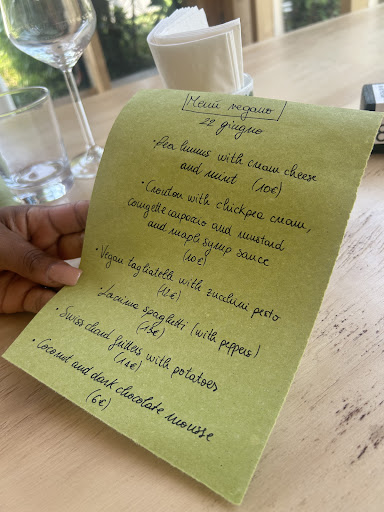 Menù vegano
22 giugno
• Pea hummus with cream cheese
and mint (10€)
• Crouton with chickpea cream,
courgette carpaccio and mustard
and maple syrup sauce
(10€)
• Vegan tagliatelle with zucchini pesto
(12€)
• spaghetti (with peppers)
(13€)
• Swiss chard fritters with potatoes
(14€)
• Coconut and dark chocolate mousse
(6€)